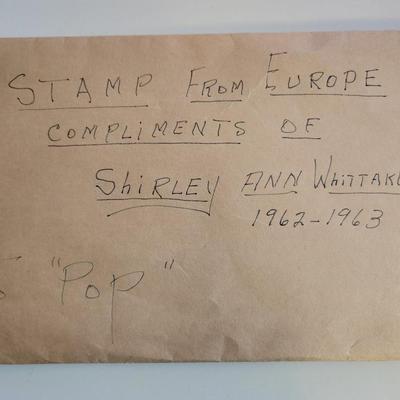 STAMP FROM EUROPE
COMPLIMENTS OF
ShiRLEY ANN WhiTTAK
1962-1963
"Pop"